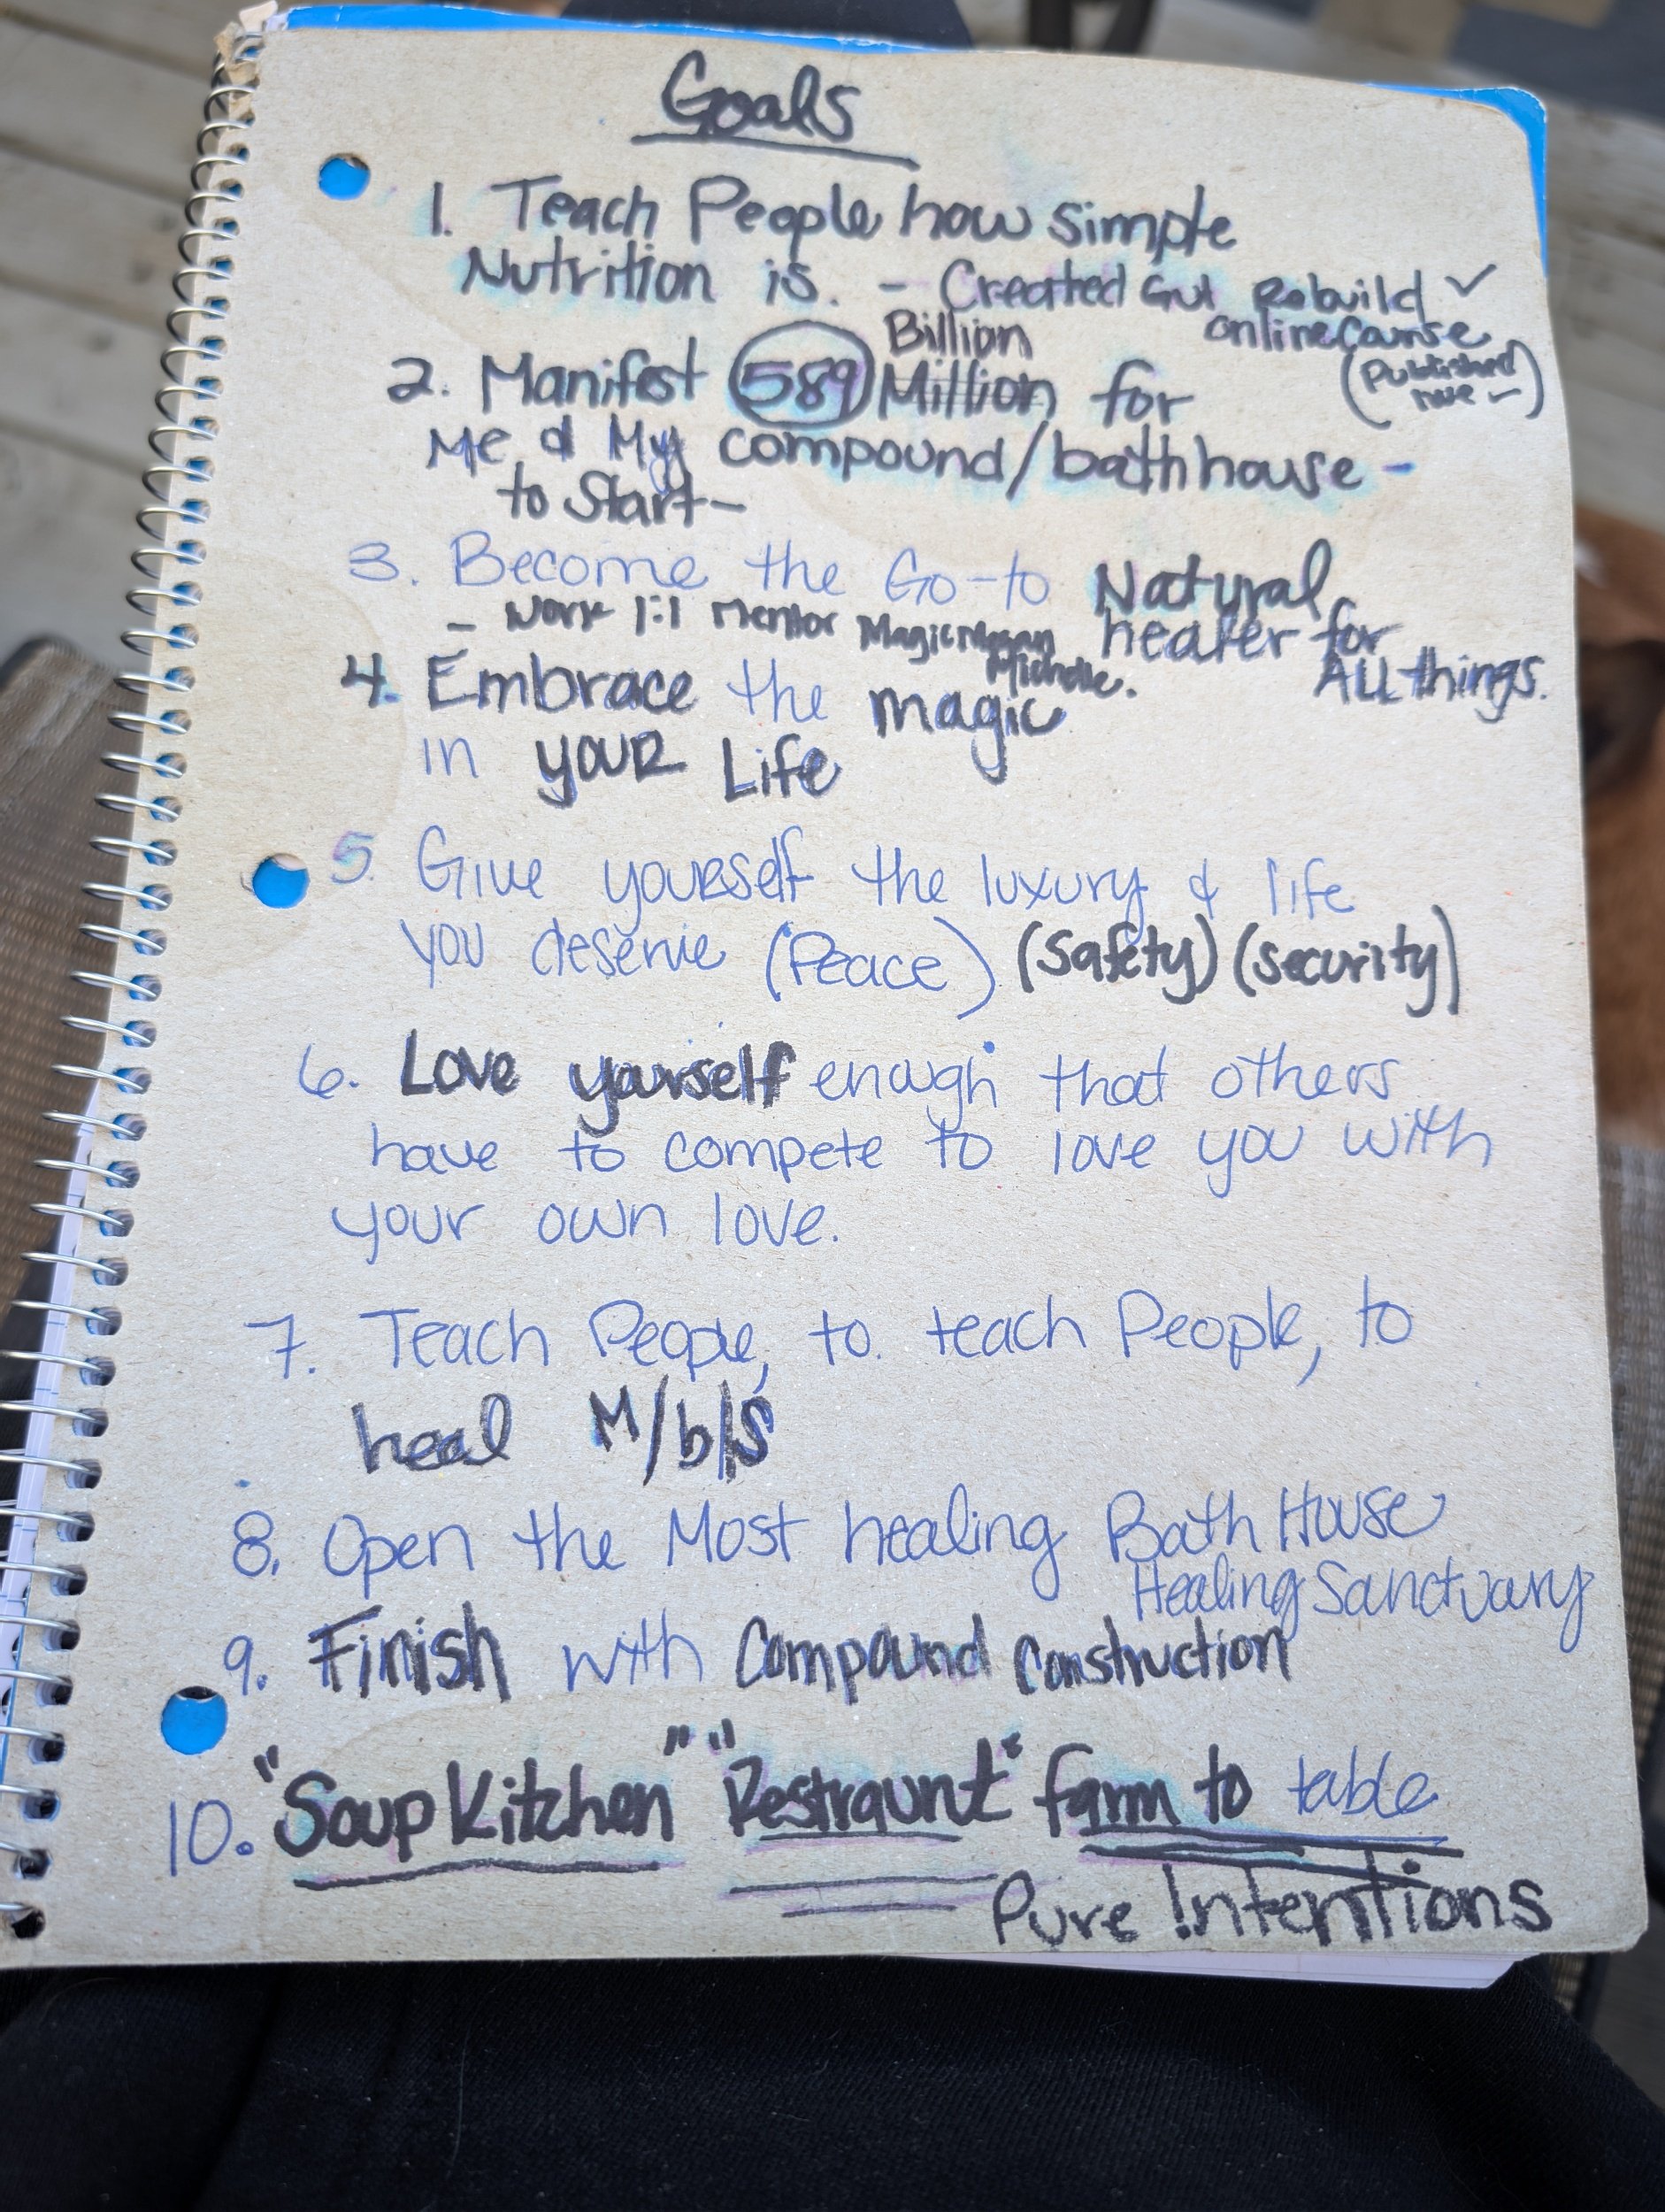 Goals
1. Teach People how simple
Nutrition is. - Created Gut Rebuild ✓
online Course
(Published)
Billion
2. Manifest 589 Million for
Me & My compound/bathhouse -
to Start-
3. Become the Go-to Natural
healer for
ALL things.
- Work 1:1 Mentor Magic Megan
Michelle.
4. Embrace the magic
in YOUR Life
5. Give yourself the luxury & life
you deserve (Peace) (Safety) (security)
6. Love yourself enough that others
have to compete to love you with
your own love.
7. Teach People, to teach People, to
heal M/b/S
8. Open the Most healing Bath House
Healing Sanctuary
9. Finish with Compound Construction
10. "Soup Kitchen" "Restraunt" farm to table
Pure Intentions